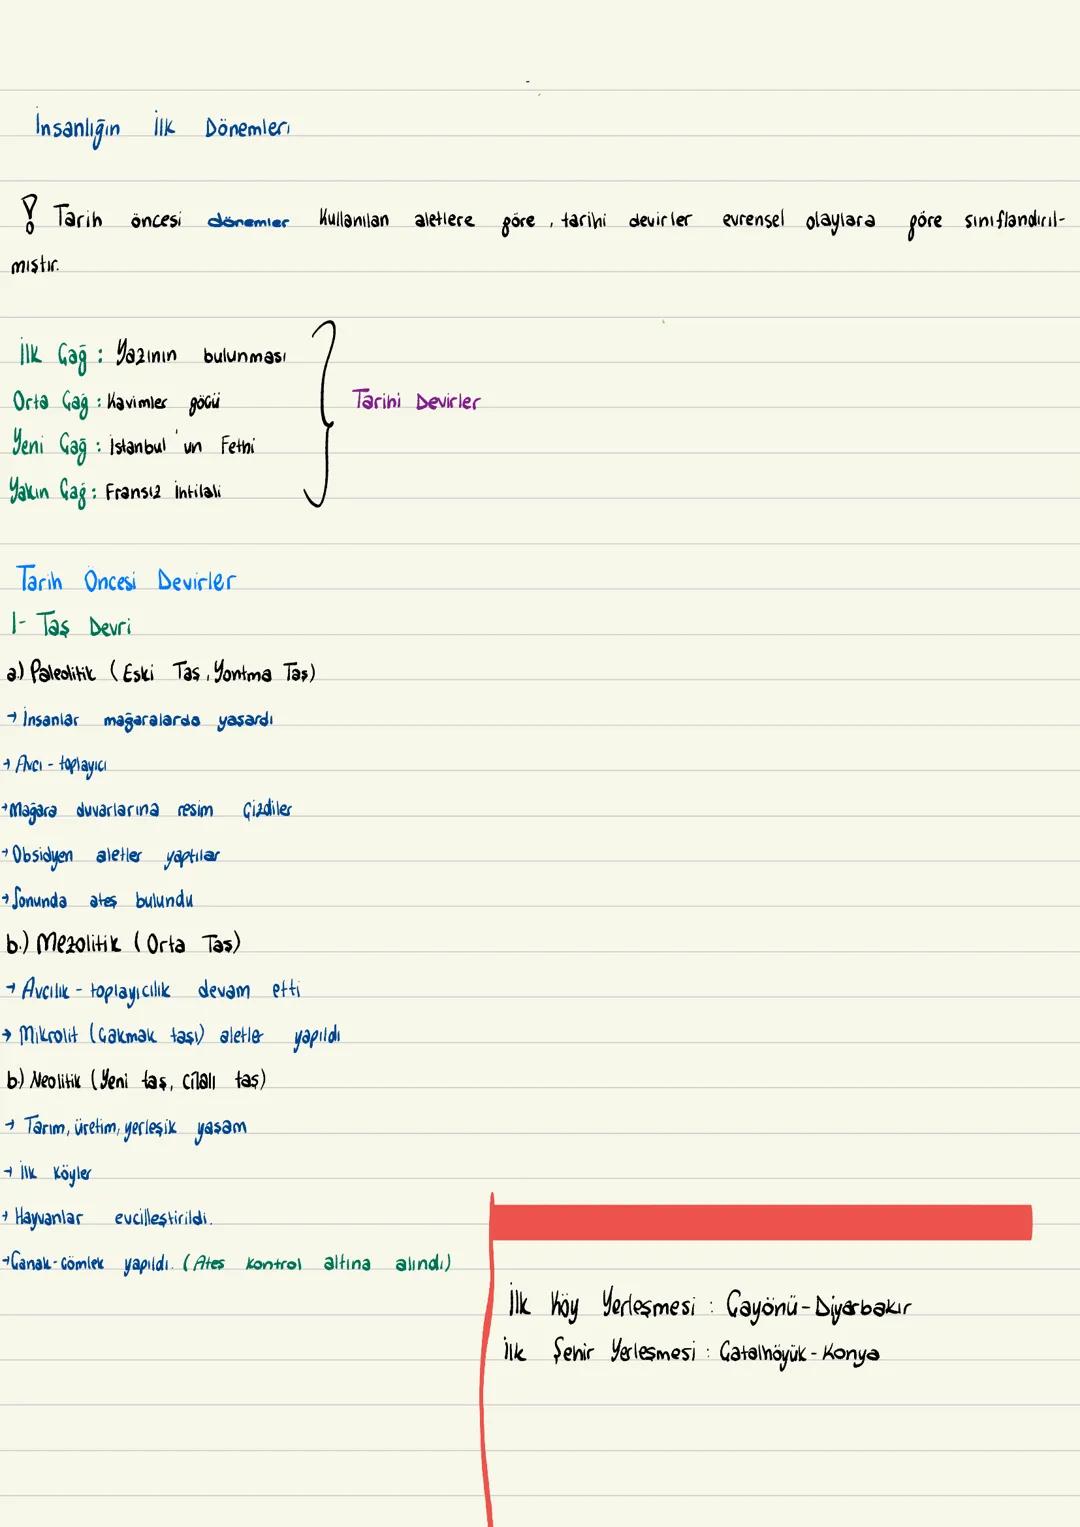 İnsanlığın İlk Dönemleri
Tarih öncesi dönemler kullanılan aletlere göre, tarihi devirler evrensel olaylara göre sınıflandırıl-
mıştır.
İlk Çağ : Yazının bulunması
Orta Çağ : Kavimler göçü
Yeni Çağ : İstanbul'un Fethi
Yakın Çağ : Fransız İhtilali
Tarihi Devirler
Tarih Öncesi Devirler
1- Taş Devri
a.) Paleolitik (Eski Taş, Yontma Taş)
→ İnsanlar mağaralarda yaşardı
→ Avcı - toplayıcı
→ Mağara duvarlarına resim çizdiler
→ Obsidyen aletler yaptılar
→ Sonunda ateş bulundu
b.) Mezolitik (Orta Taş)
→ Avcılık - toplayıcılık devam etti
→ Mikrolit (Çakmak taşı) aletler yapıldı
b.) Neolitik (Yeni taş, cilalı taş)
→ Tarım, üretim, yerleşik yaşam
→ İlk köyler
→ Hayvanlar evcilleştirildi.
→ Çanak-Çömlek yapıldı. (Ateş kontrol altına alındı)
İlk Köy Yerleşmesi : Çayönü - Diyarbakır
İlk Şehir Yerleşmesi : Çatalhöyük - Konya